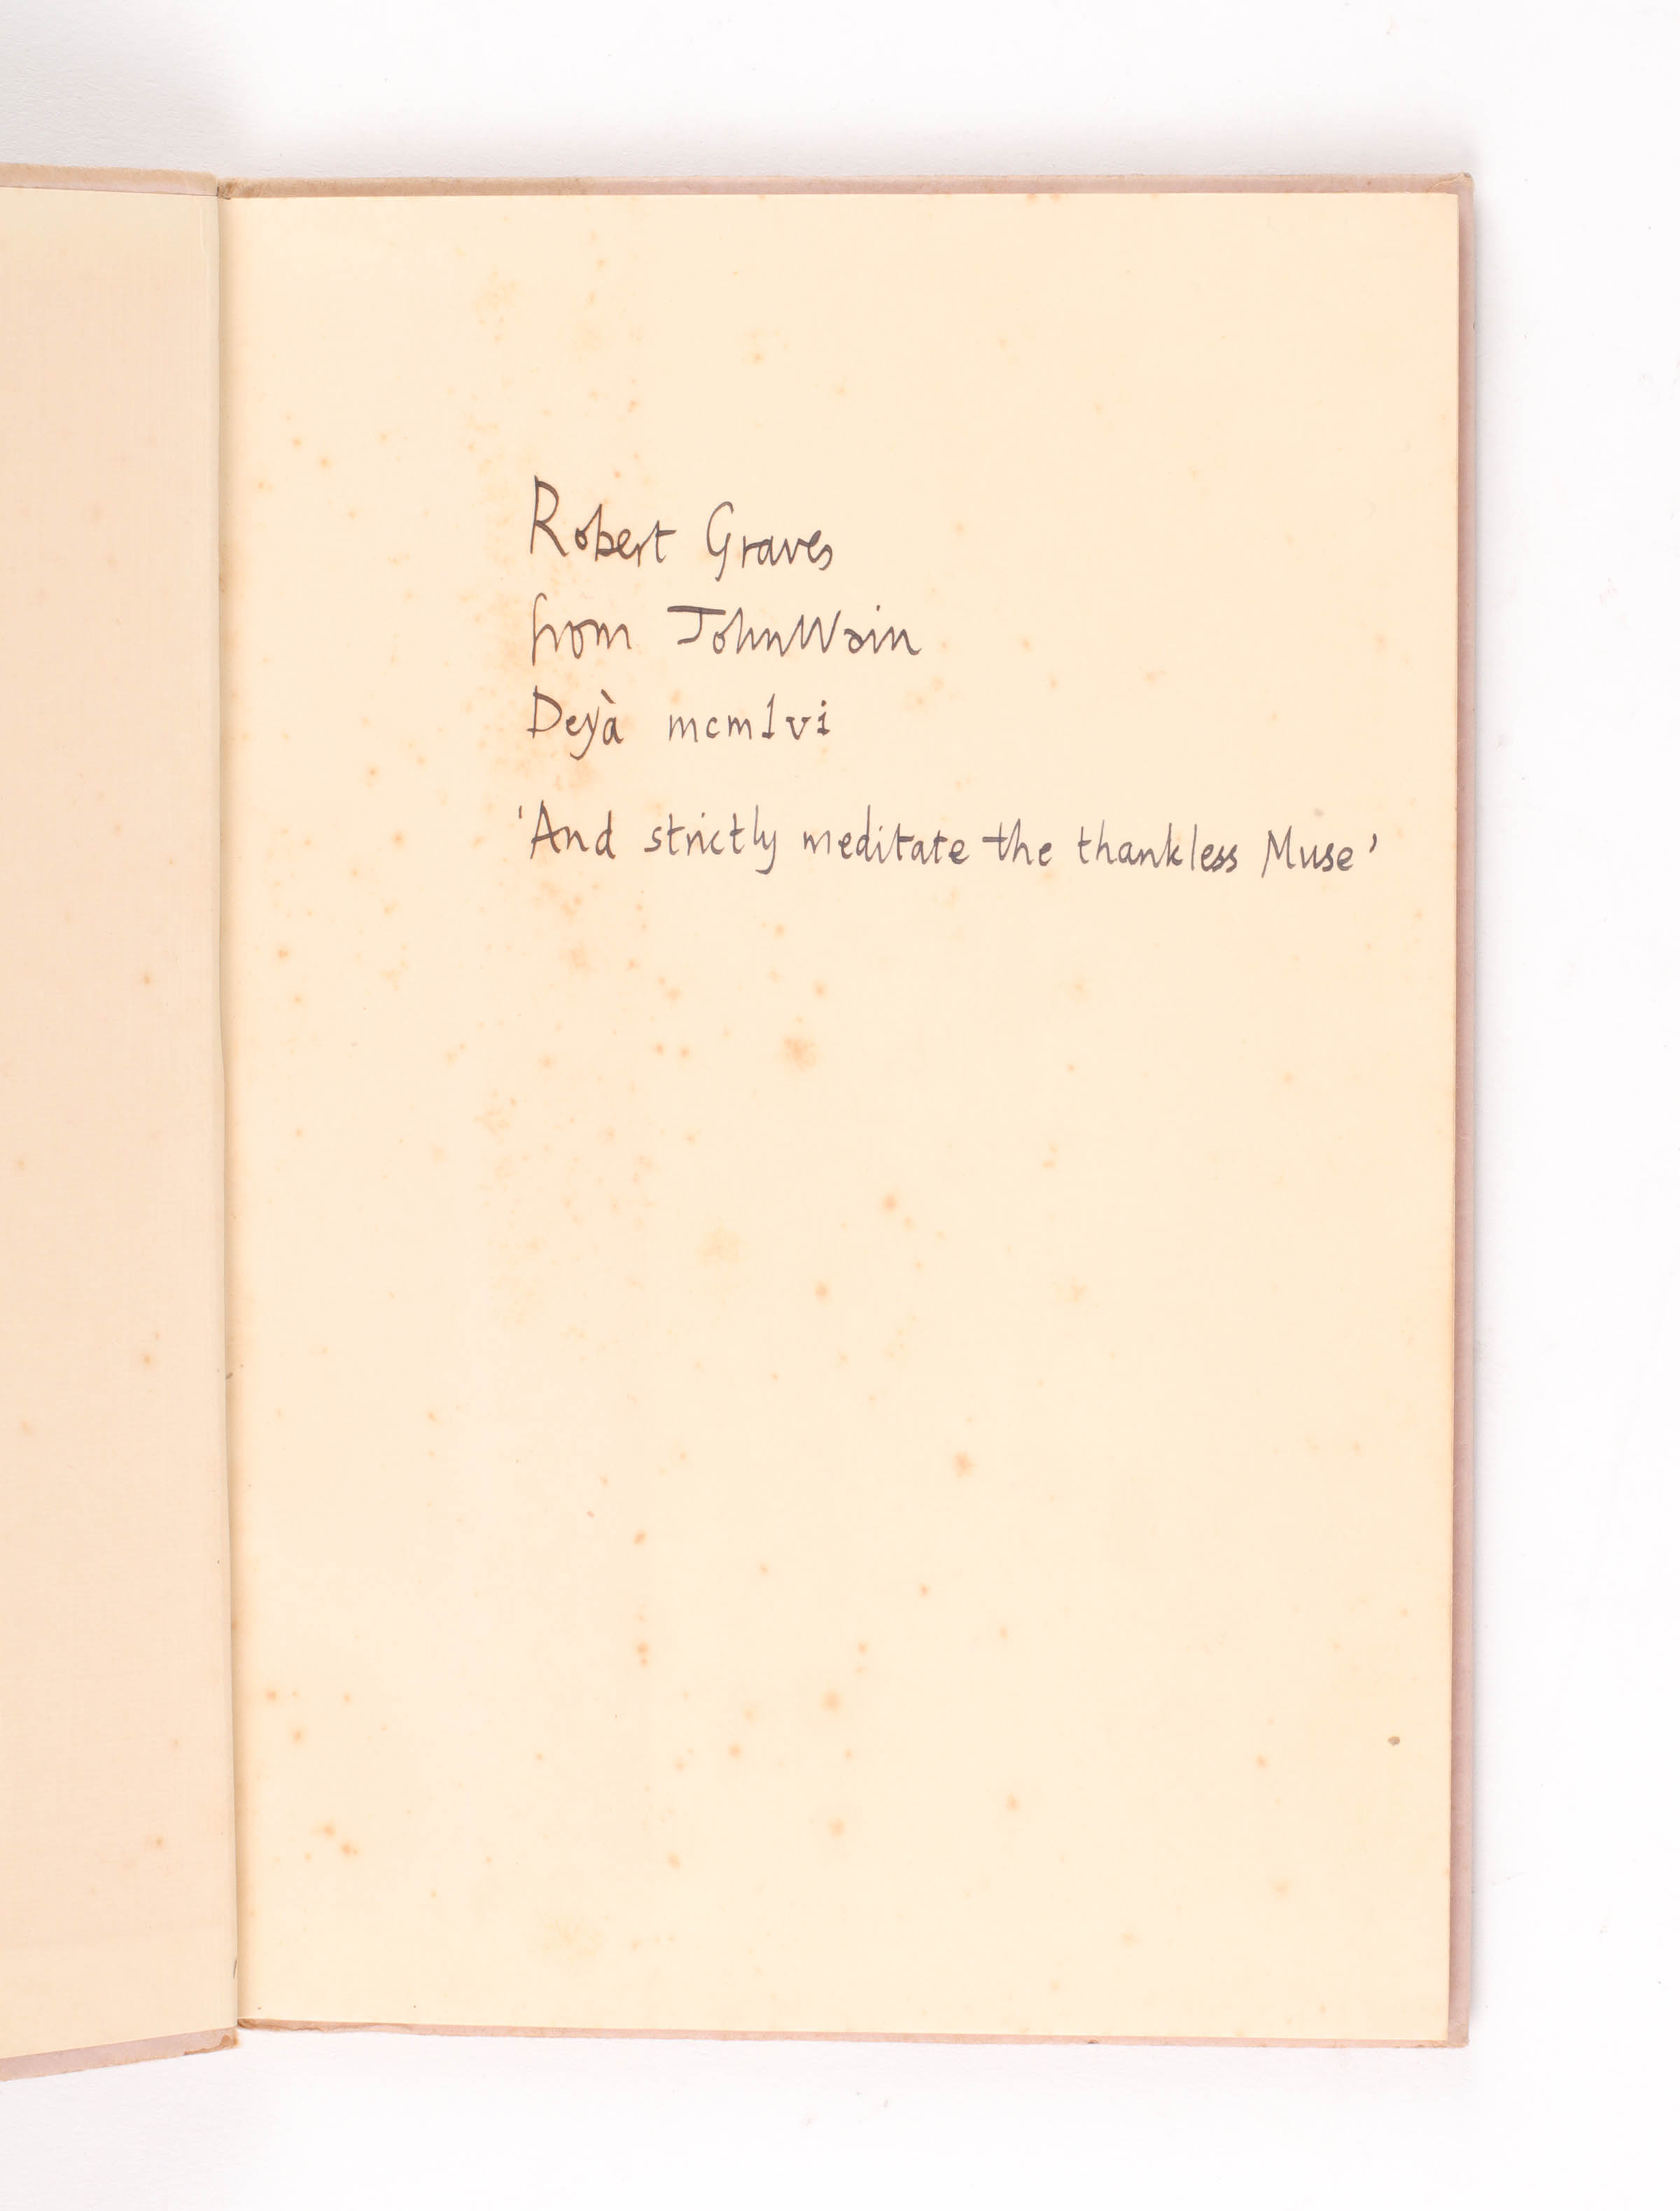 Robert Graves
from John Wain
Deyà mcmlvi
'And strictly meditate the thankless Muse'